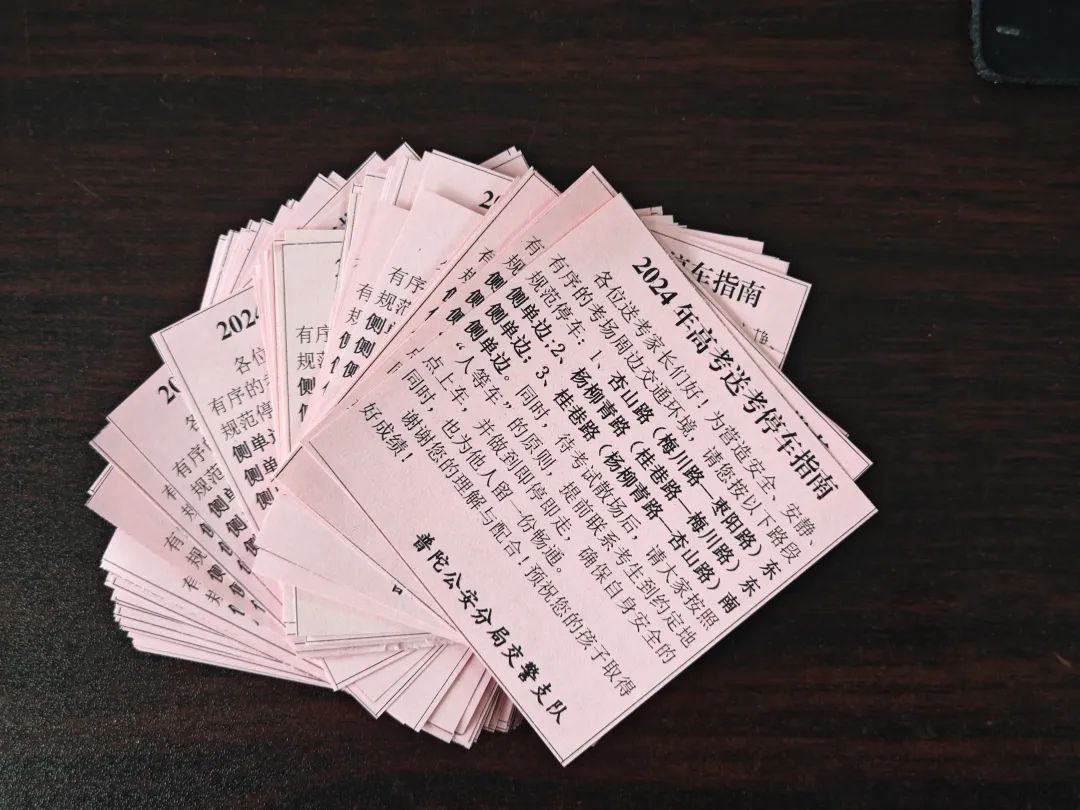 2024年高考送考停车指南
各位送考家长们好！为营造安全、安静、
有序的考场周边交通环境，请您按以下路段
规范停车：1、杏山路（梅川路—枣阳路）东
侧单边；2、杨柳青路（桂巷路—梅川路）东
侧单边；3、桂巷路（杨柳青路—杏山路）南
侧单边。同时，待考试散场后，请大家按照
“人等车”的原则，提前联系考生到约定地
点上车，并做到即停即走，确保自身安全的
同时，也为他人留一份畅通。
谢谢您的理解与配合！预祝您的孩子取得
好成绩！
普陀公安分局交警支队
车指南
2024
各位
有序的考
规范停
侧单边
侧
侧
有序
规范
侧
侧